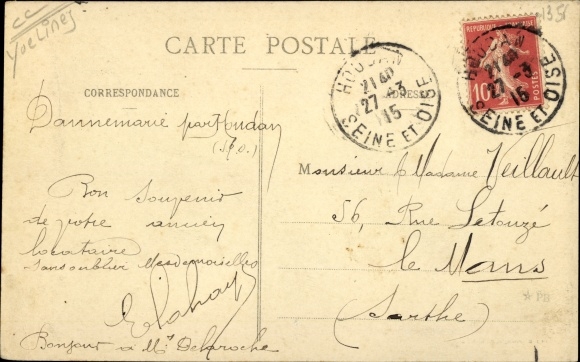 CC
Yvelines
13.5
CARTE POSTALE
CORRESPONDANCE
ADRESSE
HOUDAN
21 40
27 -3
15
SEINE ET OISE
RÉPUBLIQUE FRANÇAISE
10
POSTES
HOUDAN
21 40
27 -3
15
SEINE ET OISE
Dannemarie par Houdan
(S.&.O.)
Bon souvenir
de votre ancien
locataire
sans oublier Mesdemoiselles
Bonjour à Mr Delaroche
Monsieur & Madame Veillault
56, Rue Letouzé
le Mans
(Sarthe)